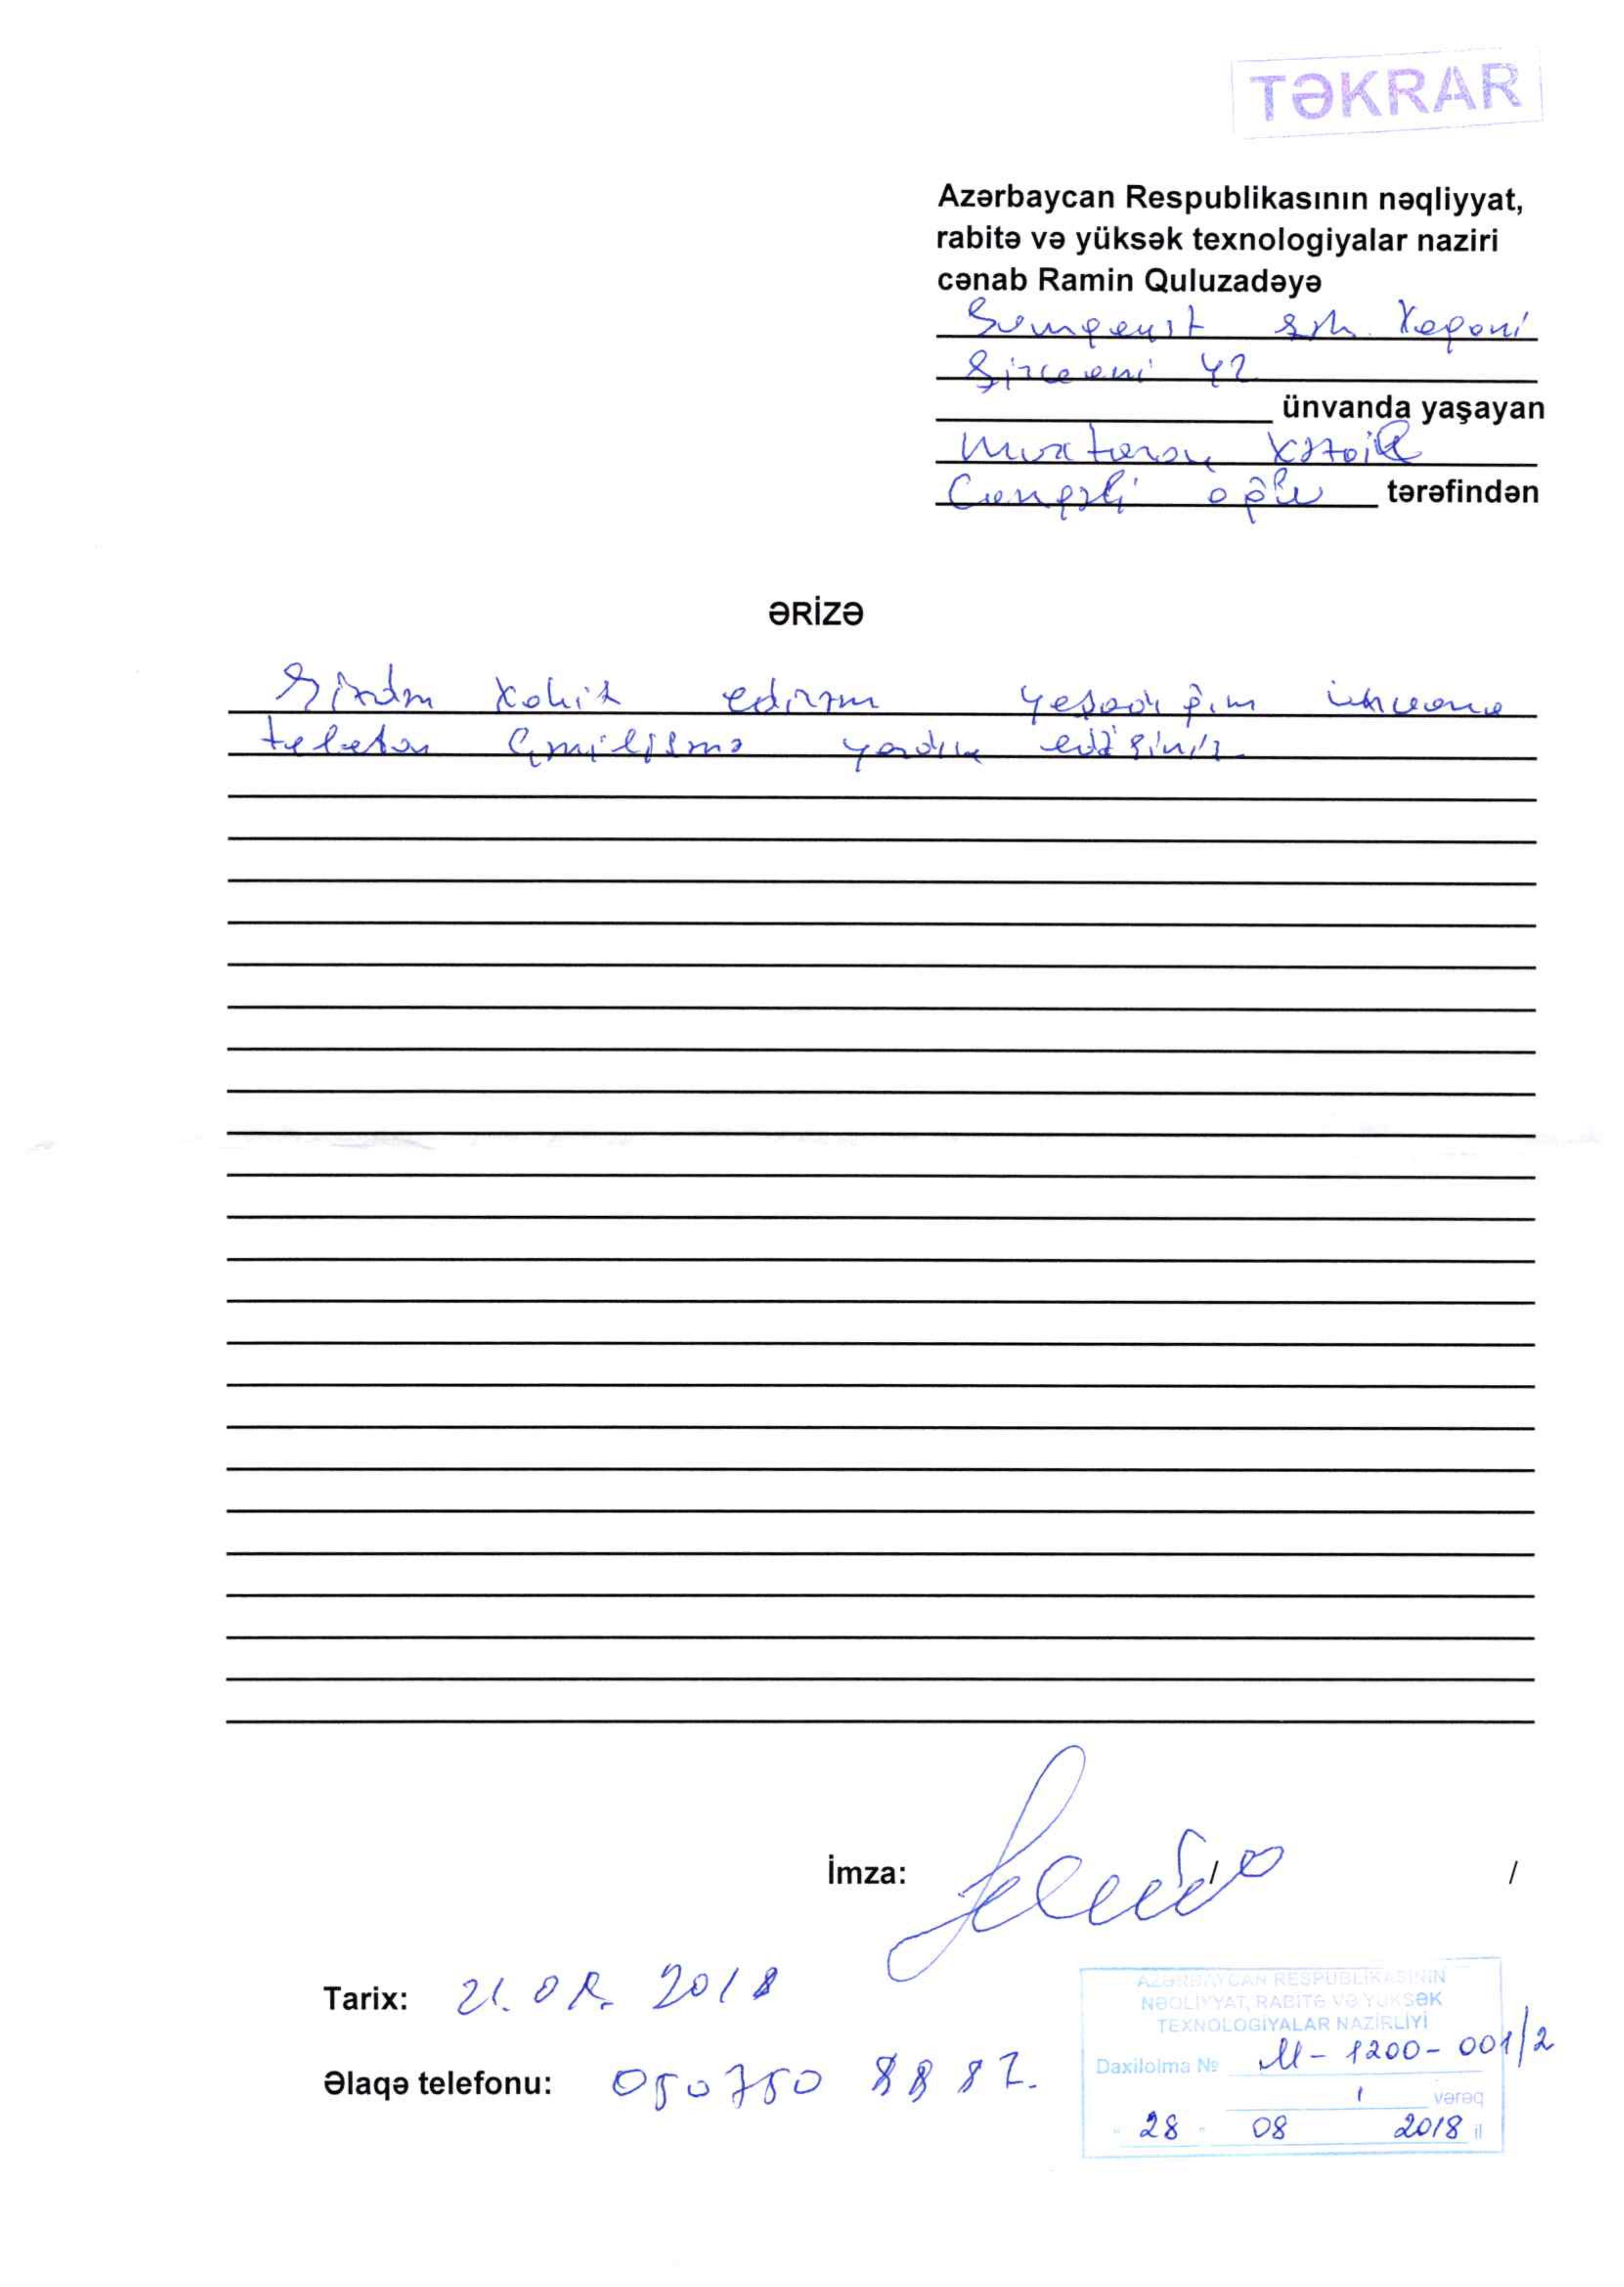 TƏKRAR
Azərbaycan Respublikasının nəqliyyat,
rabitə və yüksək texnologiyalar naziri
cənab Ramin Quluzadəyə
Sumqayıt şəh. Xaqani
Şirvani 42
ünvanda yaşayan
Muxtarov
Cəngəli oğlu tərəfindən
ƏRİZƏ
Sizdən xahiş edirəm yaşadığım ünvana
telefon yardım
İmza: / /
Tarix: 21.08.2018
Əlaqə telefonu: 050750 88 87.
AZƏRBAYCAN RESPUBLİKASININ
NƏQLİYYAT, RABİTƏ VƏ YÜKSƏK
TEXNOLOGİYALAR NAZİRLİYİ
Daxilolma № M-1200-001/2
1 vərəq
28 - 08 2018 il